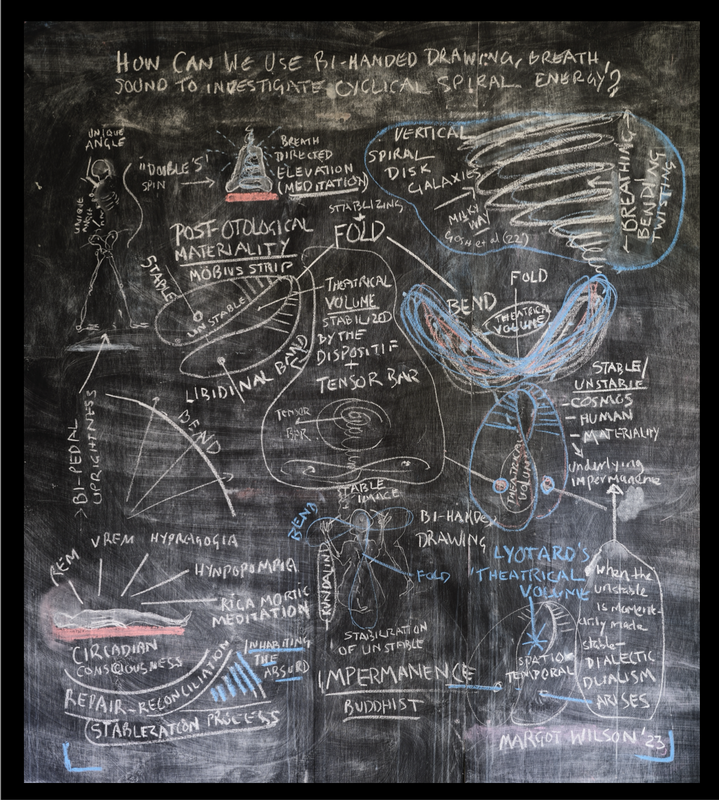 HOW CAN WE USE BI-HANDED DRAWING, BREATH,
SOUND TO INVESTIGATE CYCLICAL SPIRAL ENERGY?
UNIQUE
ANGLE
UNIQUE
ANGLE
"DOUBLE'S"
SPIN
BREATH
DIRECTED
ELEVATION
(MEDITATION)
VERTICAL
SPIRAL
DISK
GALAXIES
MILKY
WAY
BREATHING
BENDING
TWISTING
STABILIZING
FOLD
POST-OTOLOGICAL
MATERIALITY
MÖBIUS STRIP
STABLE
UNSTABLE
LIBIDINAL BAND
THEATRICAL
VOLUME
STABILIZED
BY THE
DISPOSITIF
+
TENSOR BAR
TENSOR
BAR
FOLD
BEND
THEATRICAL
VOLUME
STABLE/
UNSTABLE
- COSMOS
- HUMAN
- MATERIALITY
underlying
impermanence
THEATRICAL
VOLUME
BEND
BI-PEDAL
UPRIGHTNESS
STABLE
IMAGE
BEND
BI-HANDED
DRAWING
FOLD
KUNDALINI
STABILIZATION
OF UNSTABLE
REM
VREM
HYPNAGOGIA
HYNPOPOMPIA
RIGA MORTIC
MEDITATION
CIRCADIAN
CONSCIOUSNESS
REPAIR-RECONCILIATION
STABLEZATION PROCESS
INHABITING
THE
ABSURD
IMPERMANENCE
BUDDHIST
LYOTARD'S
THEATRICAL
VOLUME
SPATIO
TEMPORAL
When the
unstable
is moment-
arily made
stable-
DIALECTIC
DUALISM
ARISES
MARGOT WILSON '23